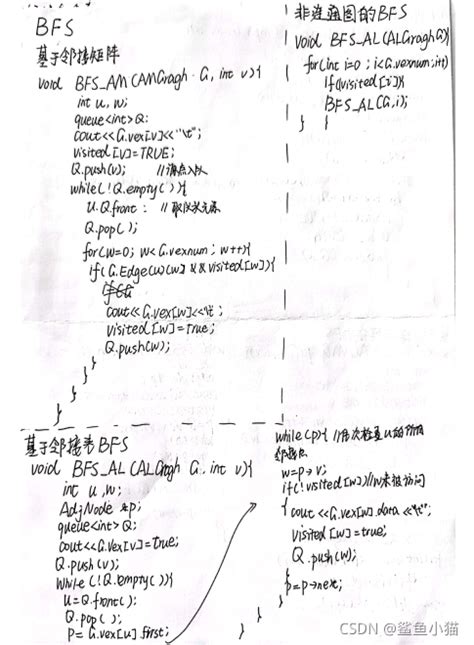 BFS
基于邻接矩阵
void BFS_AM(AMGragh G, int v){
int u, w;
queue<int>Q;
cout<<G.vex[v]<<"\t";
visited[v]=TRUE;
Q.push(v); //源点入队
while(!Q.empty()){
u.Q.front: //取队头元素
Q.pop();
for(w=0; w<G.vexnum; w++){
if(G.Edge[u][w] && visited[w]){
cout<<G.vex[w]<<\t;
visited[w]=true;
Q.push(w);
}
}
}
}
非连通图的BFS
void BFS_AL(ALGragh G){
for(int i=0; i<G.vexnum;i++)
if(!visited[i])
BFS_AL(G,i);
} }
基于邻接表BFS
void BFS_AL(ALGragh G, int v){
int u,w;
AdjNode *p;
queue<int>Q;
cout<<G.vex[v]=true;
Q.push(v);
While(!Q.empty()){
u=Q.front();
Q.pop();
p= G.vex[u].first;
while(p){ //依次检查u的所有
邻接点
w=p->v;
if(!visited[w])//w未被访问
{ cout<<G.vex[w].data<<"\t";
visited[w]=true;
Q.push(w);
}
p=p->next;
}
} }
CSDN @鲨鱼小猫